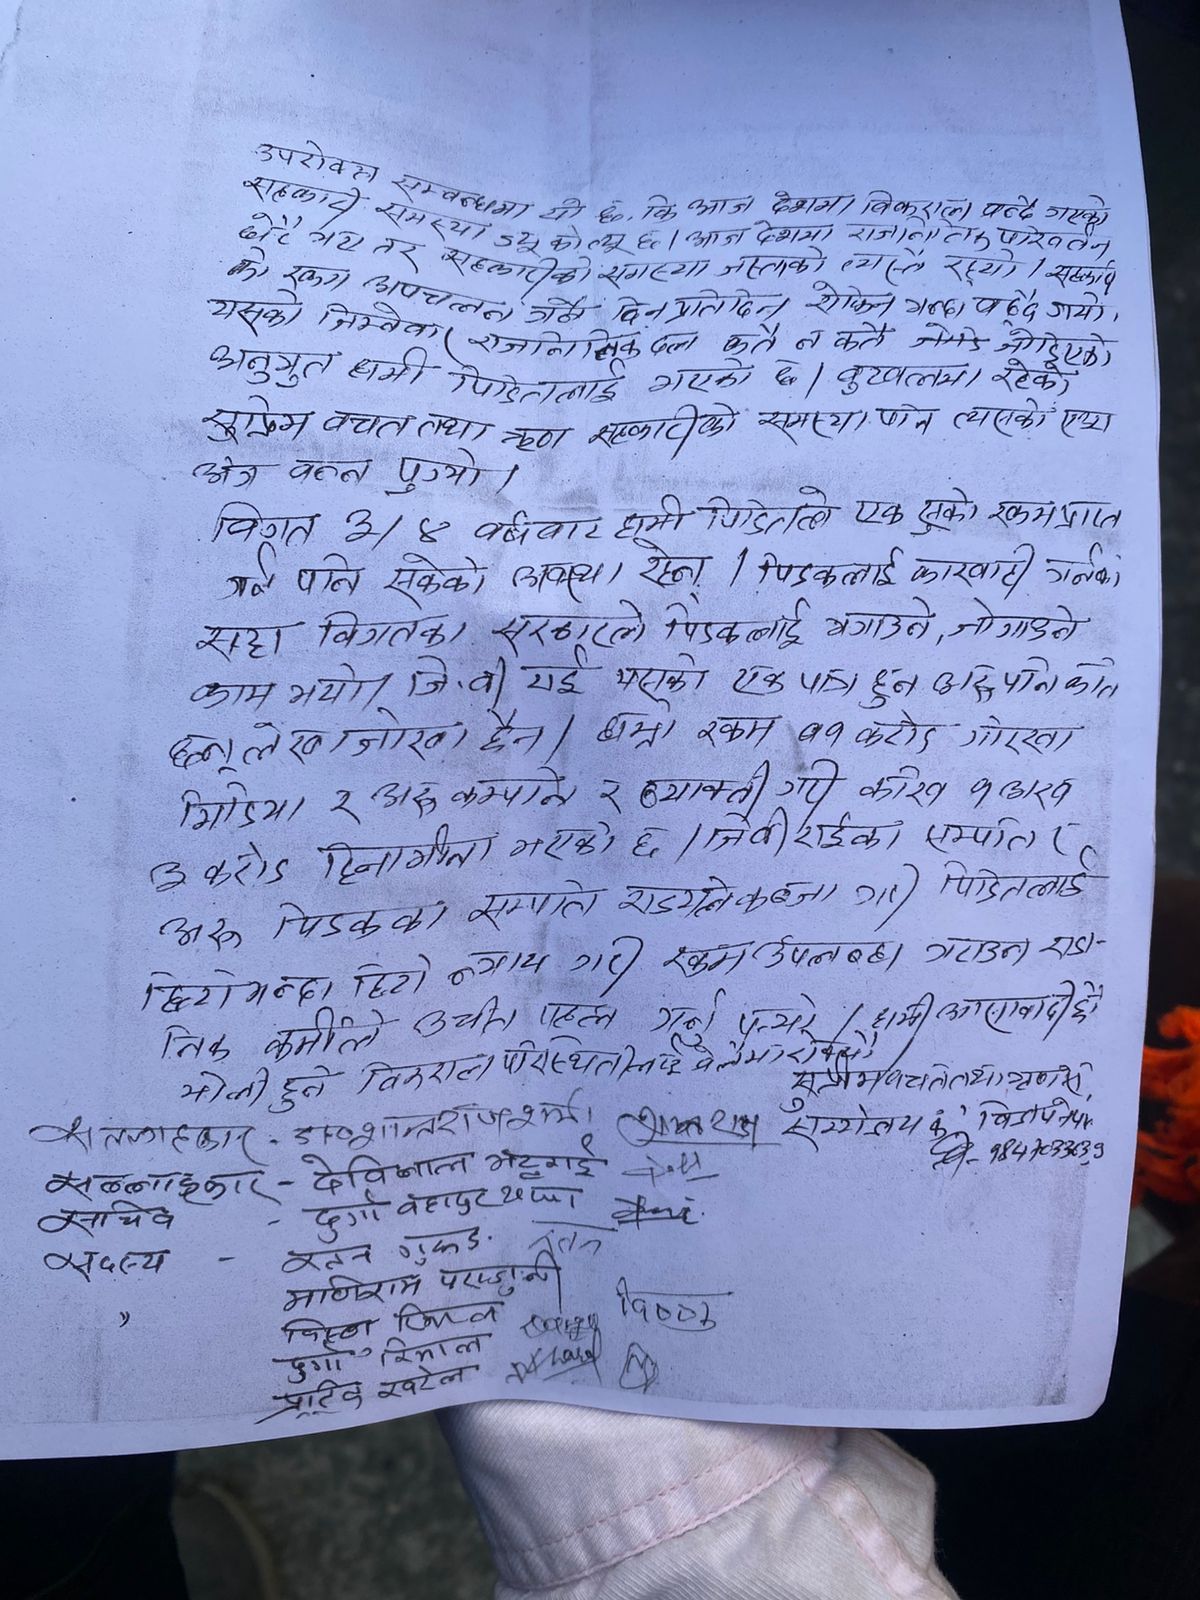 उपरोक्त सम्वन्धमा यो छ, कि आज देशमा विकराल वन्दै गएको
सहकारी समस्या ज्यू को त्यू छ। आज देशमा राजनितिक परिवर्तन
धेरै भए तर सहकारीको समस्या जस्ताको त्यस्तै रह्यो। सहकारी
को रकम अपचलन गर्ने दिन प्रतिदिन भन्दा वढ्दै गयो।
यसको जिम्वेवार राजनितिक दल कतै न कतै जोडिएको
अनुभुत हामी पिडितलाई भएको छ। वुटवलमा रहेको
सुप्रिम वचत तथा ऋण सहकारीको समस्या पनि त्यसको एउटा
अंग वन्न पुग्यो।
विगत ३/४ वर्षवाट हामी पिडितले एक सुको रकम प्राप्त
गर्न पनि सकेको अवस्था छैन्। पिडकलाई कारवाही गर्नको
सट्टा विगतका सरकारले पिडकलाई भगाउने, जोगाउने
काम भयो। जि.वी राई यसको एक पात्र हुन अरु पनि कति
छन् लेखाजोखा छैन। हाम्रो रकम ७१ करोड गोरखा
मिडिया र अरु कम्पनि र व्याक्ती गरी करिव १ अरव
३ करोड हिनामिना भएको छ। जिवी राईका सम्पति र
अरु पिडकका सम्पति राज्यले कब्जा गरी पिडितलाई
छिटो भन्दा छिटो न्याय गरी रकम उपलब्ध गराउन राज-
नितिक कर्मीले उचीत पहल गर्नु पर्‍यो। हामी आसावादी छौ
भोली हुने विकराल परिस्थितीलाई वेलैमा रोकियो।
सुप्रिम वचत तथा ऋण स.
सल्लाहकार - डा० शान्तराज शर्मा
सल्लाहकार - देविलाल भट्टराई
9847033639
सचिव - दुर्गा वहादुर थापा
सदस्य - रतन गुरुङ
" मणिराम पराजुली
दुर्गा रिमाल
खरेल